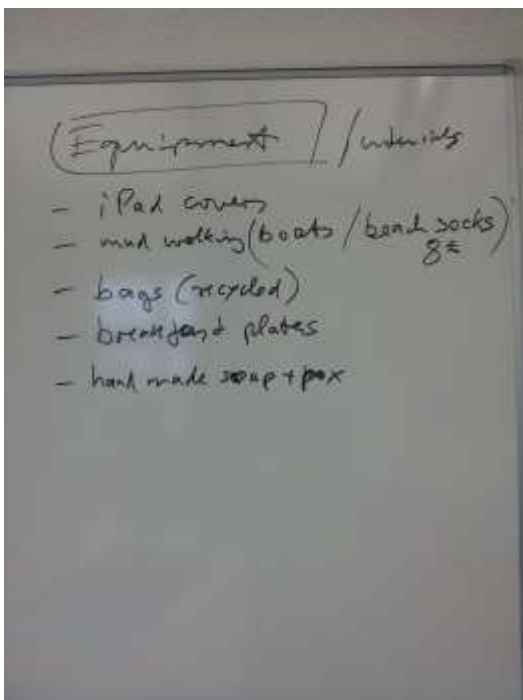 Equipment / materials
- iPad covers
- mud walking (boots / beach socks)
8€
- bags (recycled)
- breakfast plates
- hand made soap + box